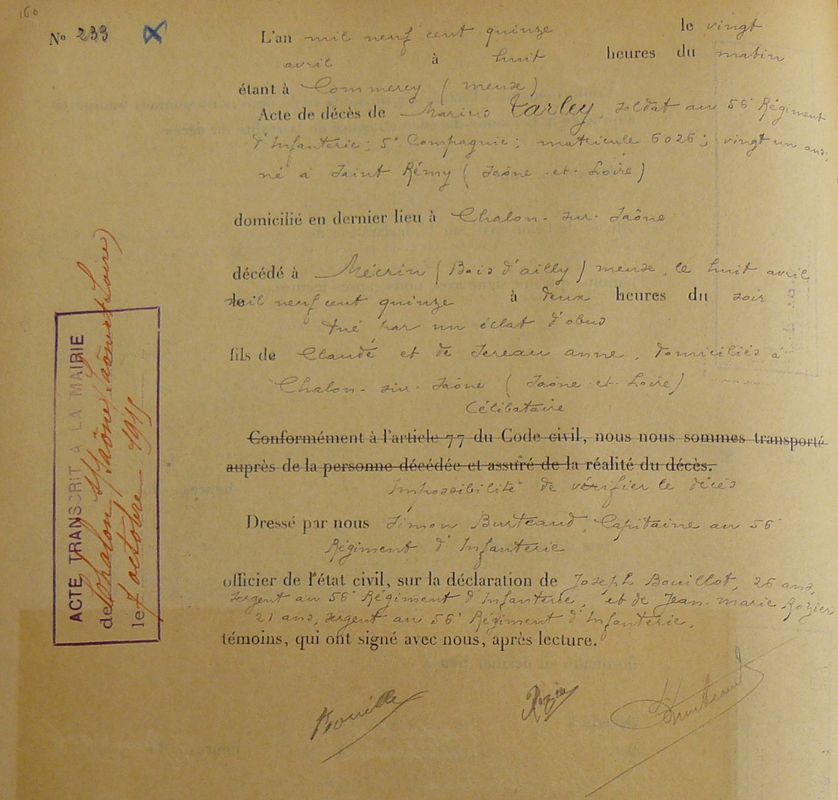 160
N° 233
L'an mil neuf cent quinze le vingt
avril à huit heures du matin
étant à Commercy (meuse)
Acte de décès de Marius Tarley, soldat au 56e Régiment
d'Infanterie; 5e Compagnie; matricule 6026; vingt un ans
né à Saint Rémy (Saône-et-Loire)
domicilié en dernier lieu à Chalon-sur-Saône
décédé à Mécrin (Bois d'ailly) meuse, le huit avril
mil neuf cent quinze à deux heures du soir
tué par un éclat d'obus
fils de Claude et de Jereau anne, domiciliés à
Chalon-sur-Saône (Saône-et-Loire)
Célibataire
Conformément à l'article 77 du Code civil, nous nous sommes transporté
auprès de la personne décédée et assuré de la réalité du décès.
Impossibilité de vérifier le décès
Dressé par nous Simon Burteaud, Capitaine au 56e
Régiment d'Infanterie
officier de l'état civil, sur la déclaration de Joseph Bouillot, 26 ans,
sergent au 56e Régiment d'Infanterie, et de Jean-marie Rozier
21 ans, sergent au 56e Régiment d'Infanterie,
témoins, qui ont signé avec nous, après lecture.
Rozier
ACTE TRANSCRIT A LA MAIRIE
de Chalon s/Saône (Saône et Loire)
le octobre 1915